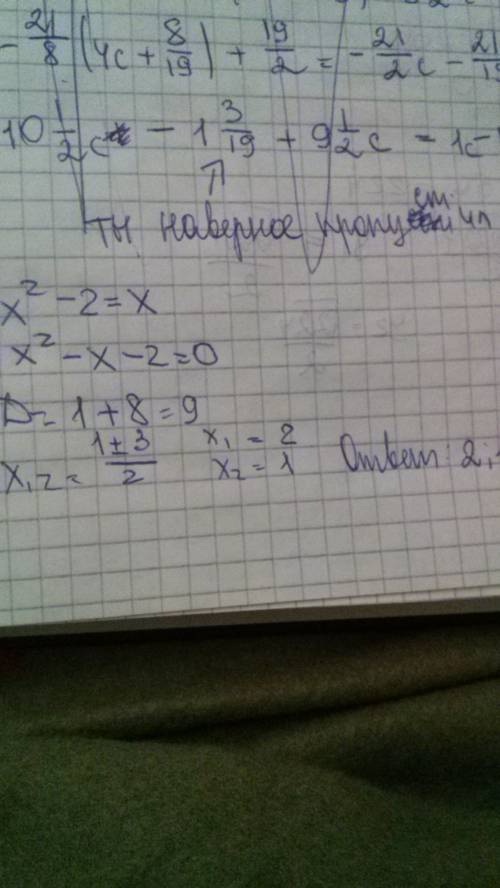 - 21/8 (4c + 8/19) + 19/2 = - 21/2 c - 21/19
10 1/2 c - 1 3/19 + 9 1/2 c = 1c -
ТЫ наверное пропуст.
x² - 2 = x
x² - x - 2 = 0
D = 1 + 8 = 9
x₁,₂ = (1 ± 3)/2 x₁ = 2
x₂ = 1 Ответ: 2,